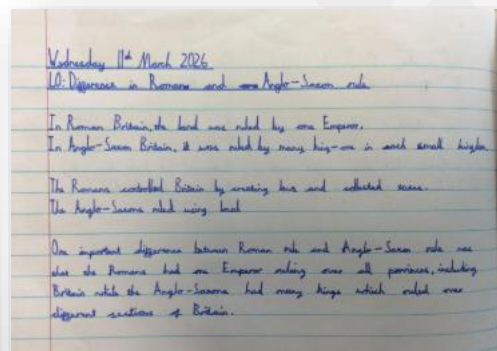 Wednesday 11th March 2026
LO: Difference in Romans and Anglo-Saxon rule
In Roman Britain, the land was ruled by one Emperor.
In Anglo-Saxon Britain, it was ruled by many king-one in each small kingdom.
The Romans controlled Britain by creating laws and collected taxes.
The Anglo-Saxons ruled using local
One important difference between Roman rule and Anglo-Saxon rule was
that the Romans had one Emperor ruling over all provinces, including
Britain while the Anglo-Saxons had many kings which ruled over
different sections of Britain.